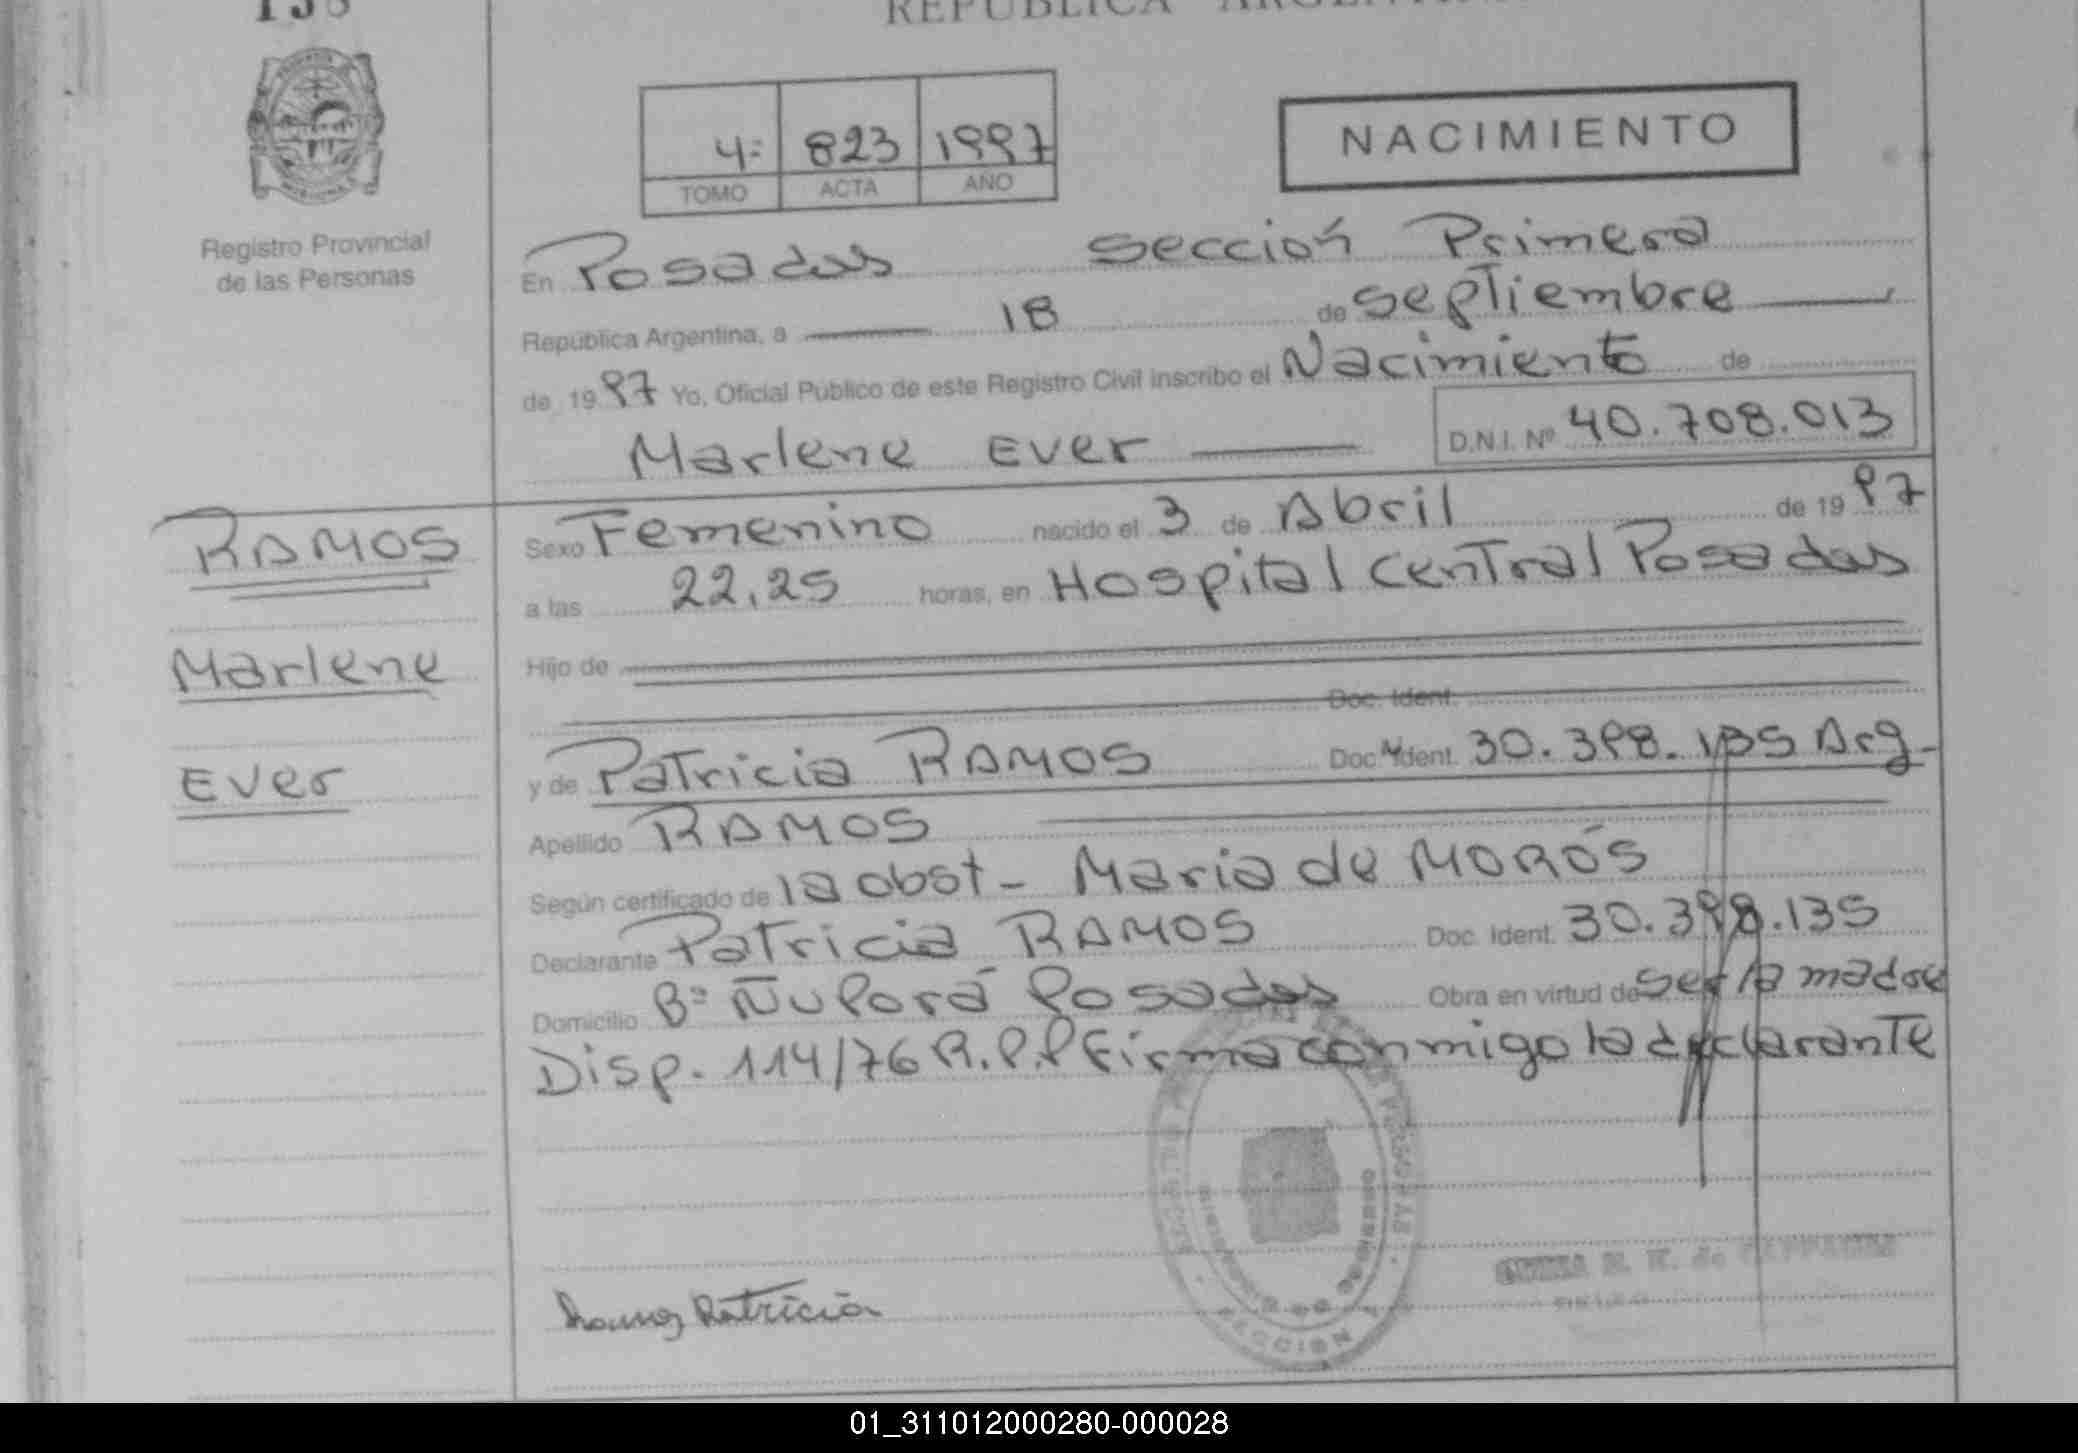 REPUBLICA ARGENTINA
4= 823 1997
TOMO ACTA AÑO
NACIMIENTO
Registro Provincial
de las Personas
En Posadas Sección Primera
República Argentina, a 18 de Septiembre
de 1997 Yo, Oficial Público de este Registro Civil inscribo el Nacimiento de
Marlene Ever D.N.I. Nº 40.708.013
RAMOS
Marlene
Ever
Sexo Femenino nacido el 3 de Abril de 1997
a las 22,25 horas, en Hospital Central Posadas
Hijo de
Doc. Ident.
y de Patricia RAMOS Doc. Ident. 30.398.135 Arg-
Apellido RAMOS
Según certificado de la obst- Maria de MORÓS
Declarante Patricia RAMOS Doc. Ident. 30.398.135
Domicilio Bº Ñu Porá Posadas Obra en virtud de ser la madre
Disp. 114/76 R.P.P Firma conmigo la declarante
Ramos Patricia
SECCION 1
01_311012000280-000028